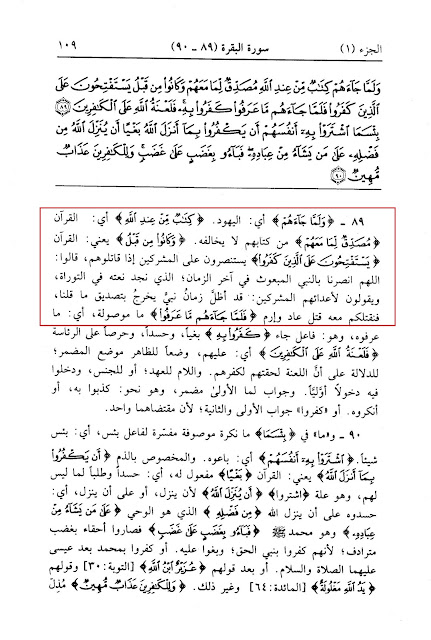 الجزء (١) سورة البقرة (٨٩ ـ ٩٠) ١٠٩
وَلَمَّا جَآءَهُمْ كِتَٰبٌ مِّنْ عِندِ ٱللَّهِ مُصَدِّقٌ لِّمَا مَعَهُمْ وَكَانُوا۟ مِن قَبْلُ يَسْتَفْتِحُونَ عَلَى
ٱلَّذِينَ كَفَرُوا۟ فَلَمَّا جَآءَهُم مَّا عَرَفُوا۟ كَفَرُوا۟ بِهِۦ فَلَعْنَةُ ٱللَّهِ عَلَى ٱلْكَٰفِرِينَ ٨٩
بِئْسَمَا ٱشْتَرَوْا۟ بِهِۦٓ أَنفُسَهُمْ أَن يَكْفُرُوا۟ بِمَآ أَنزَلَ ٱللَّهُ بَغْيًا أَن يُنَزِّلَ ٱللَّهُ مِن
فَضْلِهِۦ عَلَىٰ مَن يَشَآءُ مِنْ عِبَادِهِۦ فَبَآءُو بِغَضَبٍ عَلَىٰ غَضَبٍ وَلِلْكَٰفِرِينَ عَذَابٌ
مُّهِينٌ ٩٠
٨٩ ـ ﴿وَلَمَّا جَآءَهُمْ﴾ أي: اليهود. ﴿كِتَٰبٌ مِّنْ عِندِ ٱللَّهِ﴾ أي: القرآن
﴿مُصَدِّقٌ لِّمَا مَعَهُمْ﴾ من كتابهم لا يخالفه. ﴿وَكَانُوا۟ مِن قَبْلُ﴾ يعني: القرآن
﴿يَسْتَفْتِحُونَ عَلَى ٱلَّذِينَ كَفَرُوا۟﴾ يستنصرون على المشركين إذا قاتلوهم، قالوا:
اللهم انصرنا بالنبي المبعوث في آخر الزمان؛ الذي نجد نعته في التوراة،
ويقولون لأعدائهم المشركين: قد أظلَّ زمانُ نبيٍّ يخرجُ بتصديق ما قلنا،
فنقتلكم معه قتل عاد وإرم ﴿فَلَمَّا جَآءَهُم مَّا عَرَفُوا۟﴾ ما موصولة، أي: ما
عرفوه، وهو: فاعل جاء ﴿كَفَرُوا۟ بِهِۦ﴾ بغياً، وحسداً، وحرصاً على الرئاسة
﴿فَلَعْنَةُ ٱللَّهِ عَلَى ٱلْكَٰفِرِينَ﴾ أي: عليهم، وضعاً للظاهر موضع المضمر؛
للدلالة على أنَّ اللعنة لحقتهم لكفرهم. واللام للعهد؛ أو للجنس، ودخلوا
فيه دخولًا أوَّليًّا. وجواب لما الأولىٰ مضمر، وهو نحو: كذبوا به، أو
أنكروه. أو «كفروا» جواب الأولى والثانية؛ لأن مقتضاهما واحد.
٩٠ ـ و«ما» في ﴿بِئْسَمَا﴾ ما نكرة موصوفة مفسّرة لفاعل بئس، أي: بئس
شيئاً. ﴿ٱشْتَرَوْا۟ بِهِۦٓ أَنفُسَهُمْ﴾ أي: باعوه. والمخصوص بالذم ﴿أَن يَكْفُرُوا۟
بِمَآ أَنزَلَ ٱللَّهُ﴾ يعني: القرآن ﴿بَغْيًا﴾ مفعول له، أي: حسداً وطلباً لما ليس
لهم، وهو علة ﴿اشتروا﴾ ﴿أَن يُنَزِّلَ ٱللَّهُ﴾ لأن ينزل، أو على أن ينزل، أي:
حسدوه على أن ينزل الله ﴿مِن فَضْلِهِۦ﴾ الذي هو الوحي ﴿عَلَىٰ مَن يَشَآءُ مِنْ
عِبَادِهِۦ﴾ وهو محمد ﷺ ﴿فَبَآءُو بِغَضَبٍ عَلَىٰ غَضَبٍ﴾ فصاروا أحقاء بغضب
مترادف؛ لأنهم كفروا بنبي الحق؛ وبغوا عليه. أو كفروا بمحمد بعد عيسى
عليهما الصلاة والسلام. أو بعد قولهم ﴿عُزَيْرٌ ٱبْنُ ٱللَّهِ﴾ [التوبة: ٣٠] وقولهم
﴿يَدُ ٱللَّهِ مَغْلُولَةٌ﴾ [المائدة: ٦٤] وغير ذلك. ﴿وَلِلْكَٰفِرِينَ عَذَابٌ مُّهِينٌ﴾ مُذِلّ